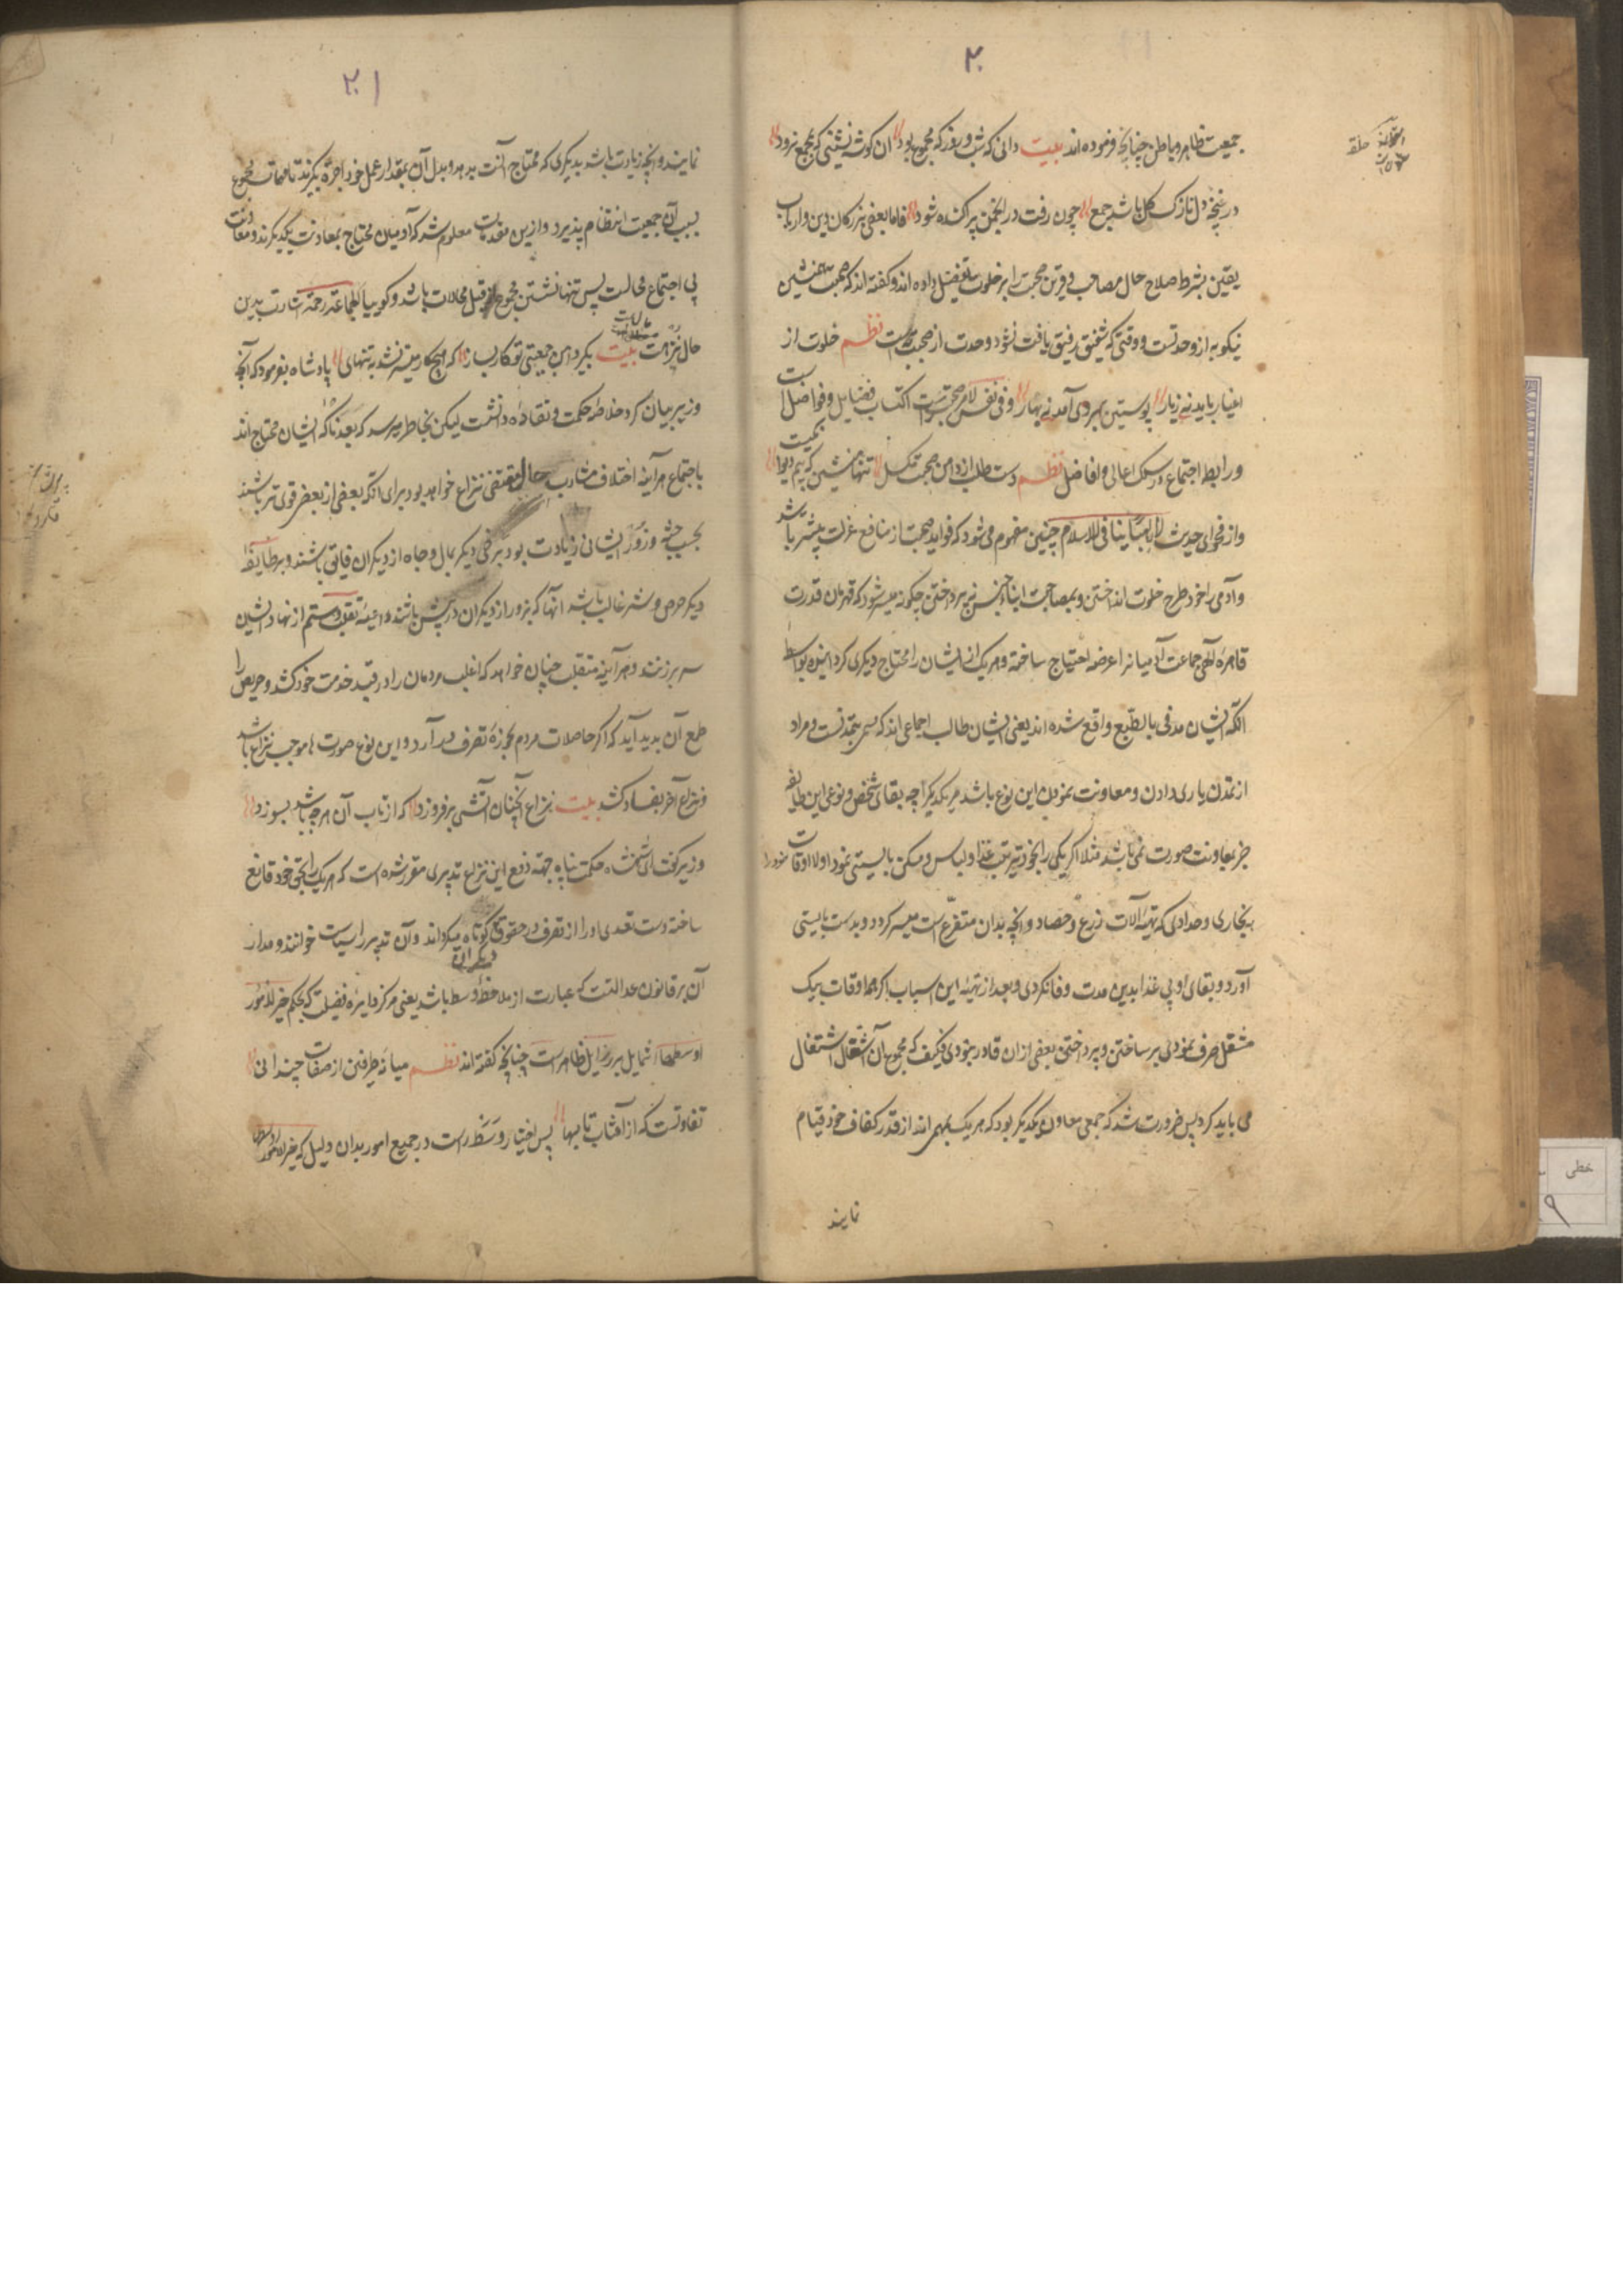 ۲۰
جمعیت ظاهر و باطن چنانچه فرموده اند بیت دانی که شب و روز که مجموع بود ان کوشه نشینی که بمجمع نرود
در غنچه دل نازک کل باشد جمع چون رفت در انجمن پراکنده شود فاما بعضی بزرکان دین و ارباب
یقین بشرط صلاح حال مصاحب و قرین صحبت را بر خلوت تفضیل داده اند و کفته اند که صحبت همنشین
نیکو به از وحدتست و وقتی که شفیق رفیق یافت نشود وحدت از صحبت به است نظم خلوت از
اغیار باید نی زیار پوستین بهر دی آمد نی بهار و فی نفس الامر صحبت اکتساب فضایل و فواضل است
و رابطه اجتماع در سلک اعالی و افاضل نظم دست طلب از دامن صحبت مکسل تنها منشین که بیم دیوا
و از فحوای حدیث لا رهبانیة فی الاسلام چنین مفهوم می شود که فواید صحبت از منافع عزلت بیشتر باشد
و آدمی را خود طرح خلوت انداختن و بمصاحبت ابناء جنس نپرداختن چکونه میسر شود که قهرمان قدرت
قاهره الهی جماعت آدمیانرا عرضه احتیاج ساخته و هر یک از ایشان را محتاج دیکری کردانیده بواسطه
انکه ایشان مدنی بالطبع واقع شده اند یعنی ایشان طالب اجماعی اند که مسمی بتمدنست و مراد
از تمدن یاری دادن و معاونت نمودن این نوع باشد مر یکدیکر را چه بقای شخص و نوعی این طایفه
جز بمعاونت صورت نمی باشد مثلا اکر یکی را بخود ترتیب غذا و لباس و مسکن بایستی نمود اولا اوقات خود را
به نجاری و حدادی که تهیه آلات زرع و حصاد و انچه بدان متفرع است میسر کردد و بدست بایستی
آورد و بقای او بی غذا بدین مدت وفا نکردی و بعد از تهیه این اسباب اکر همه اوقات بیک
شغل صرف نمودی بر ساختن و پرداختن بعضی از ان قادر نبودی فکیف که بمجموع آن اشغال اشتغال
می باید کرد پس ضرورت شد که جمعی معاون یکدیکر بود که هر یک بمهمی اند از قدر کفاف خود قیام
نمایند
۲۱
نمایند و انچه زیادت باشد بدیکری که محتاج آنست بدهد و بدل آن بمقدار عمل خود اجرة بکیرند تا مهمات مجموع
بسبب آن جمعیت انتظام پذیرد و ازین مقدمات معلوم شد که آدمیان محتاج بمعاونت یکدیکرند و معاونت
بی اجتماع محالست پس تنها نشستن مجموع از قبیل محالات باشد و کوییا الجماعة رحمة اشارت بدین
حال بیت بکیر دامن جمعیتی و کار بساز که هیچ کار میسر نشد به تنهایی پادشاه بفرمود که آنچه
وزیر بیان کرد خلاصه حکمت و نقاده دانشست لیکن بخاطر میرسد که بعد ما که ایشان محتاج اند
باجتماع هر آینه اختلاف مشارب حال مقتضی نزاع خواهد بود برای انکه بعضی از بعضی قوی تر باشند
بحسب جثه و زور ایشانی زیادت بود و برخی دیکر بمال و جاه از دیکران فایق باشند و بر طایفه
دیکر حرص و شره غالب باشد آنها که بزور از دیکران در پیش باشند داعیه تغلب و ستم از نهاد ایشان
سر برزند و هر آینه متغلب چنان خواهد که اغلب مردمان را در قید خدمت خود کشد و حریص را
طمع آن پدید آید که اکثر حاصلات مردم بحوزه تصرف در آرد و این نوع صورت ها موجب نزاع باشد
و نزاع آخر بفساد کشد بیت نزاع آنچنان آتشی برفروزد که از تاب آن هر چه باشد بسوزد
وزیر کفت ای شهنشاه حکمت پناه جهة دفع این نزاع تدبیری مقرر شده است که هر یک را بحق خود قانع
ساخته دست تعدی او را از تصرف در حقوق دیکران کوتاه میکرداند و آن تدبیر را سیاست خوانند و مدار
آن بر قانون عدالتست که عبارت از ملاحظه وسط باشد یعنی مرکز دایره فضیلت که بحکم خیر الامور
اوسطها شمایل بر رذایل ظاهر است چنانچه کفته اند نظم میانه طرفین از صفات چندانی
تفاوتست که از آفتاب تا بسها پس اختیار وسط راست در جمیع امور بدان دلیل که خیر الامور اوسطها
خطی
۹